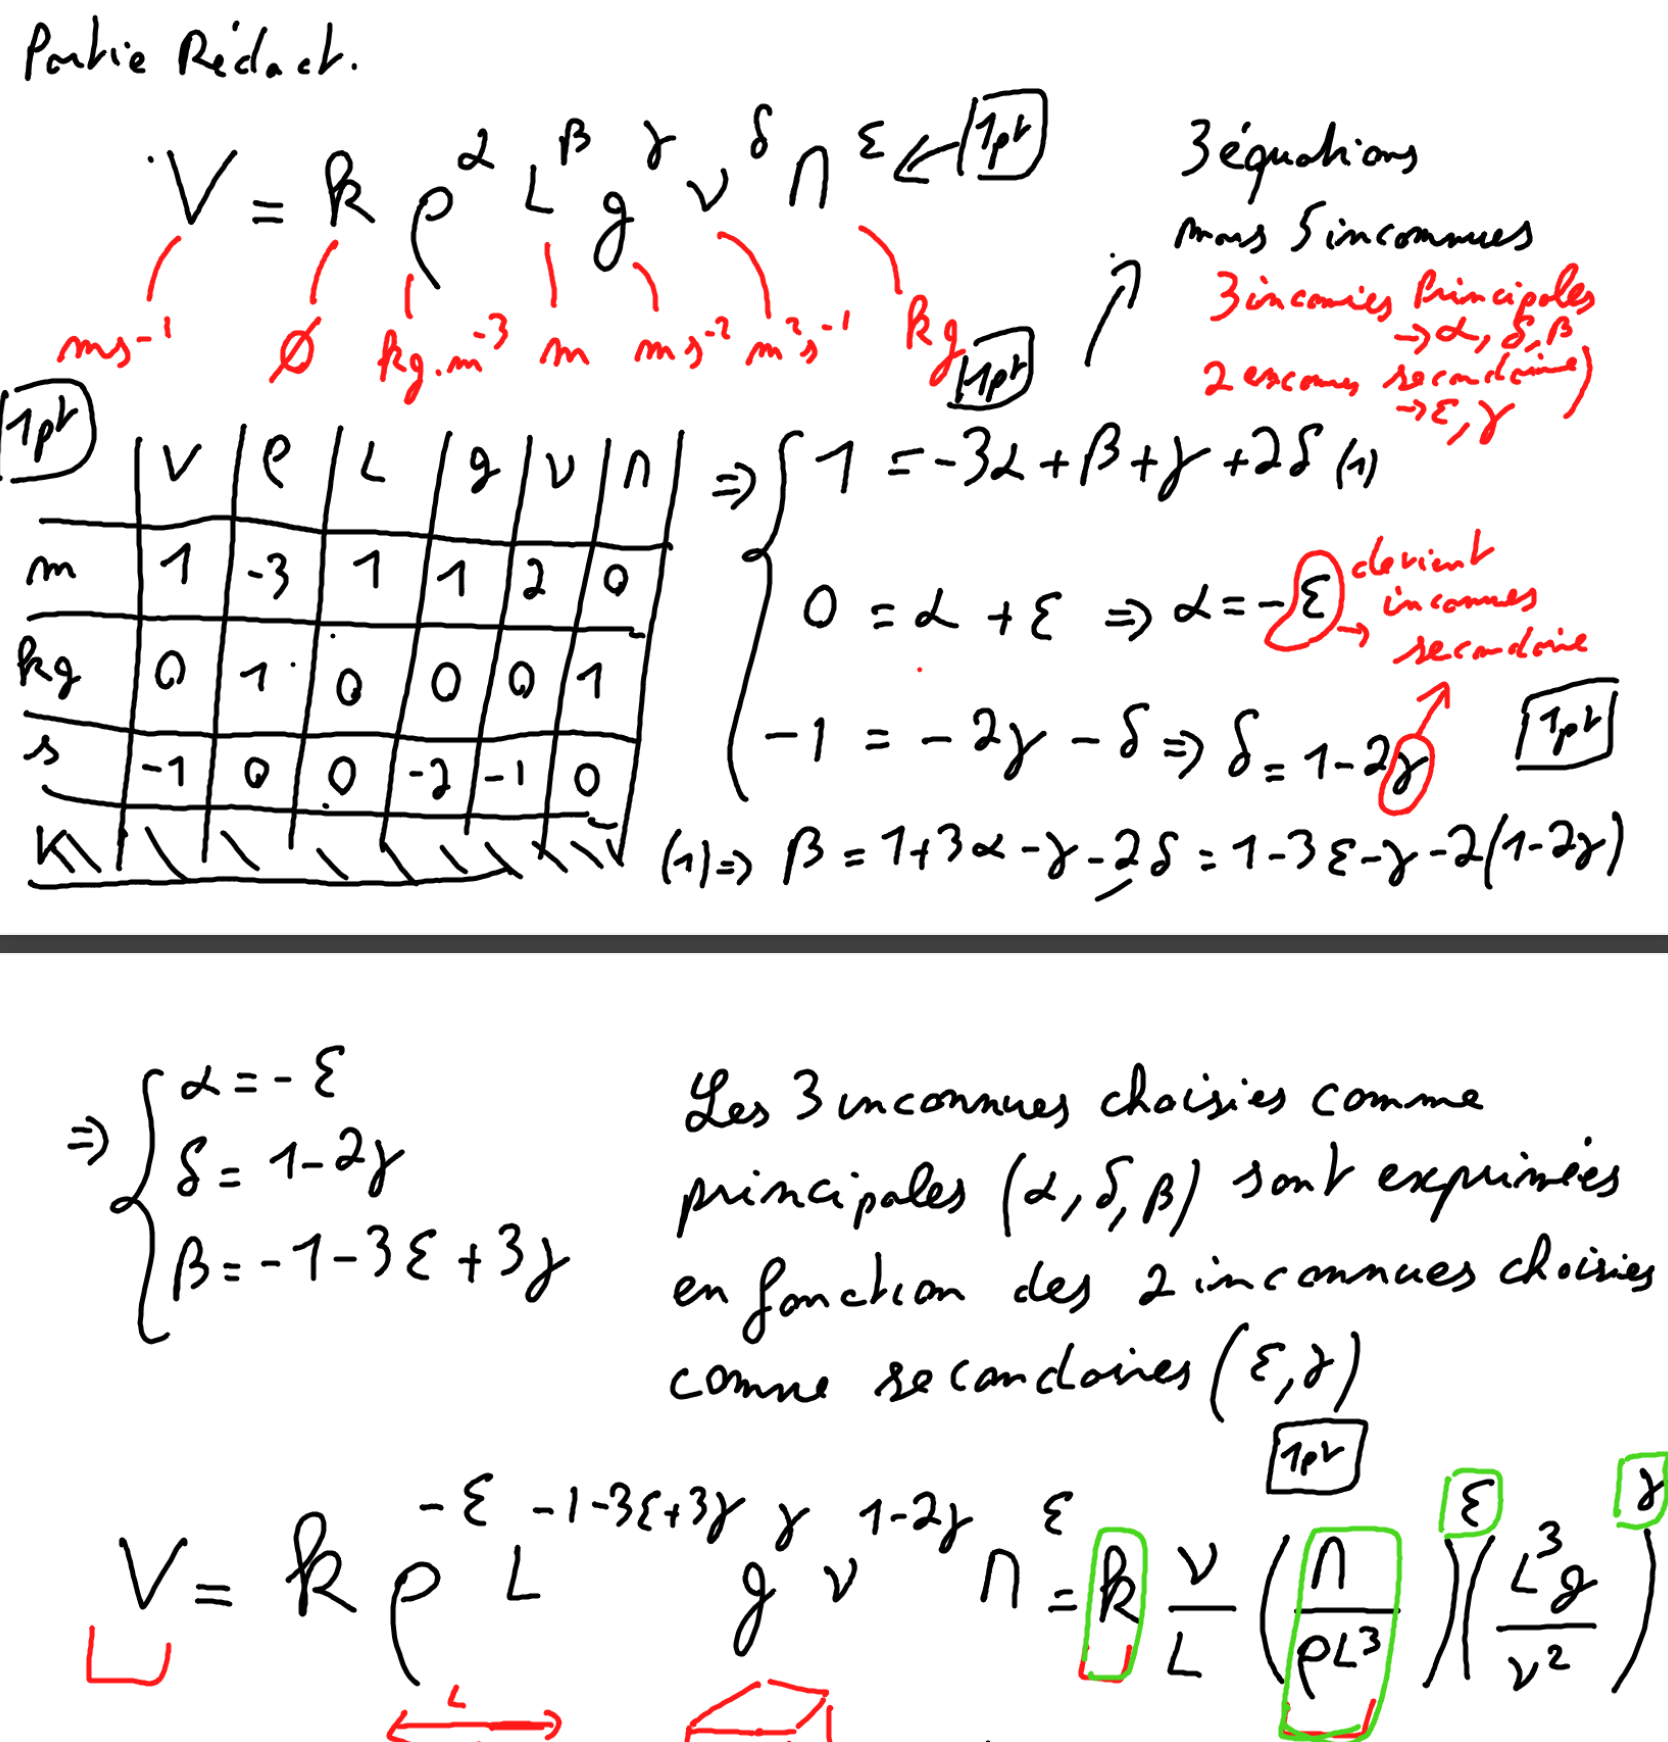 Partie Rédact.
V = k ρ^α L^β g^γ ν^δ Π^ε ← 1pt
ms⁻¹ ∅ kg.m⁻³ m ms⁻² m²s⁻¹ kg
1pt
3 équations
mais 5 inconnues
3 inconnues Principales
→ α, δ, β
2 inconnues secondaires
→ ε, γ
1pt
V ρ L g ν Π
m 1 -3 1 1 2 0
kg 0 1 0 0 0 1
s -1 0 0 -2 -1 0
K
⇒ { 1 = -3α + β + γ + 2δ (1)
0 = α + ε ⇒ α = - ε
devient
→ inconnues
secondaire
-1 = -2γ - δ ⇒ δ = 1-2γ
1pt
(1) ⇒ β = 1+3α - γ - 2δ = 1-3ε-γ-2(1-2γ)
⇒ { α = - ε
δ = 1-2γ
β = -1-3ε + 3γ
Les 3 inconnues choisies comme
principales (α, δ, β) sont exprimées
en fonction des 2 inconnues choisies
comme secondaires (ε, γ)
1pt
V = k ρ^-ε L^-1-3ε+3γ g^γ ν^1-2γ Π^ε = k ν/L (Π/ρL³)^ε (L³g/ν²)^γ
L